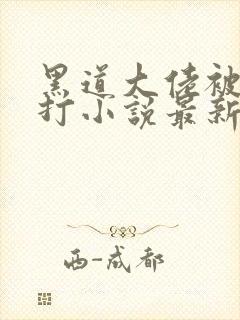 黑道大佬被
打小説最新
西-成都